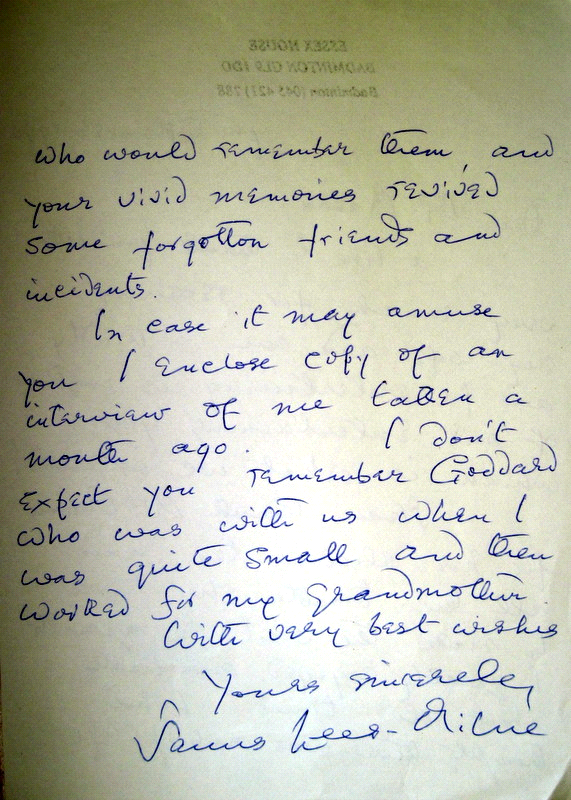 ESSEX HOUSE
BADMINTON GL9 1DD
Badminton (045 421) 288
who would remember them, and
your vivid memories revived
some forgotton friends and
incidents.
In case it may amuse
you I enclose copy of an
interview of me taken a
month ago. I don't
expect you remember Goddard
who was with us when I
was quite small and then
worked for my Grandmother.
With very best wishes
Yours sincerely,
James Lees-Milne